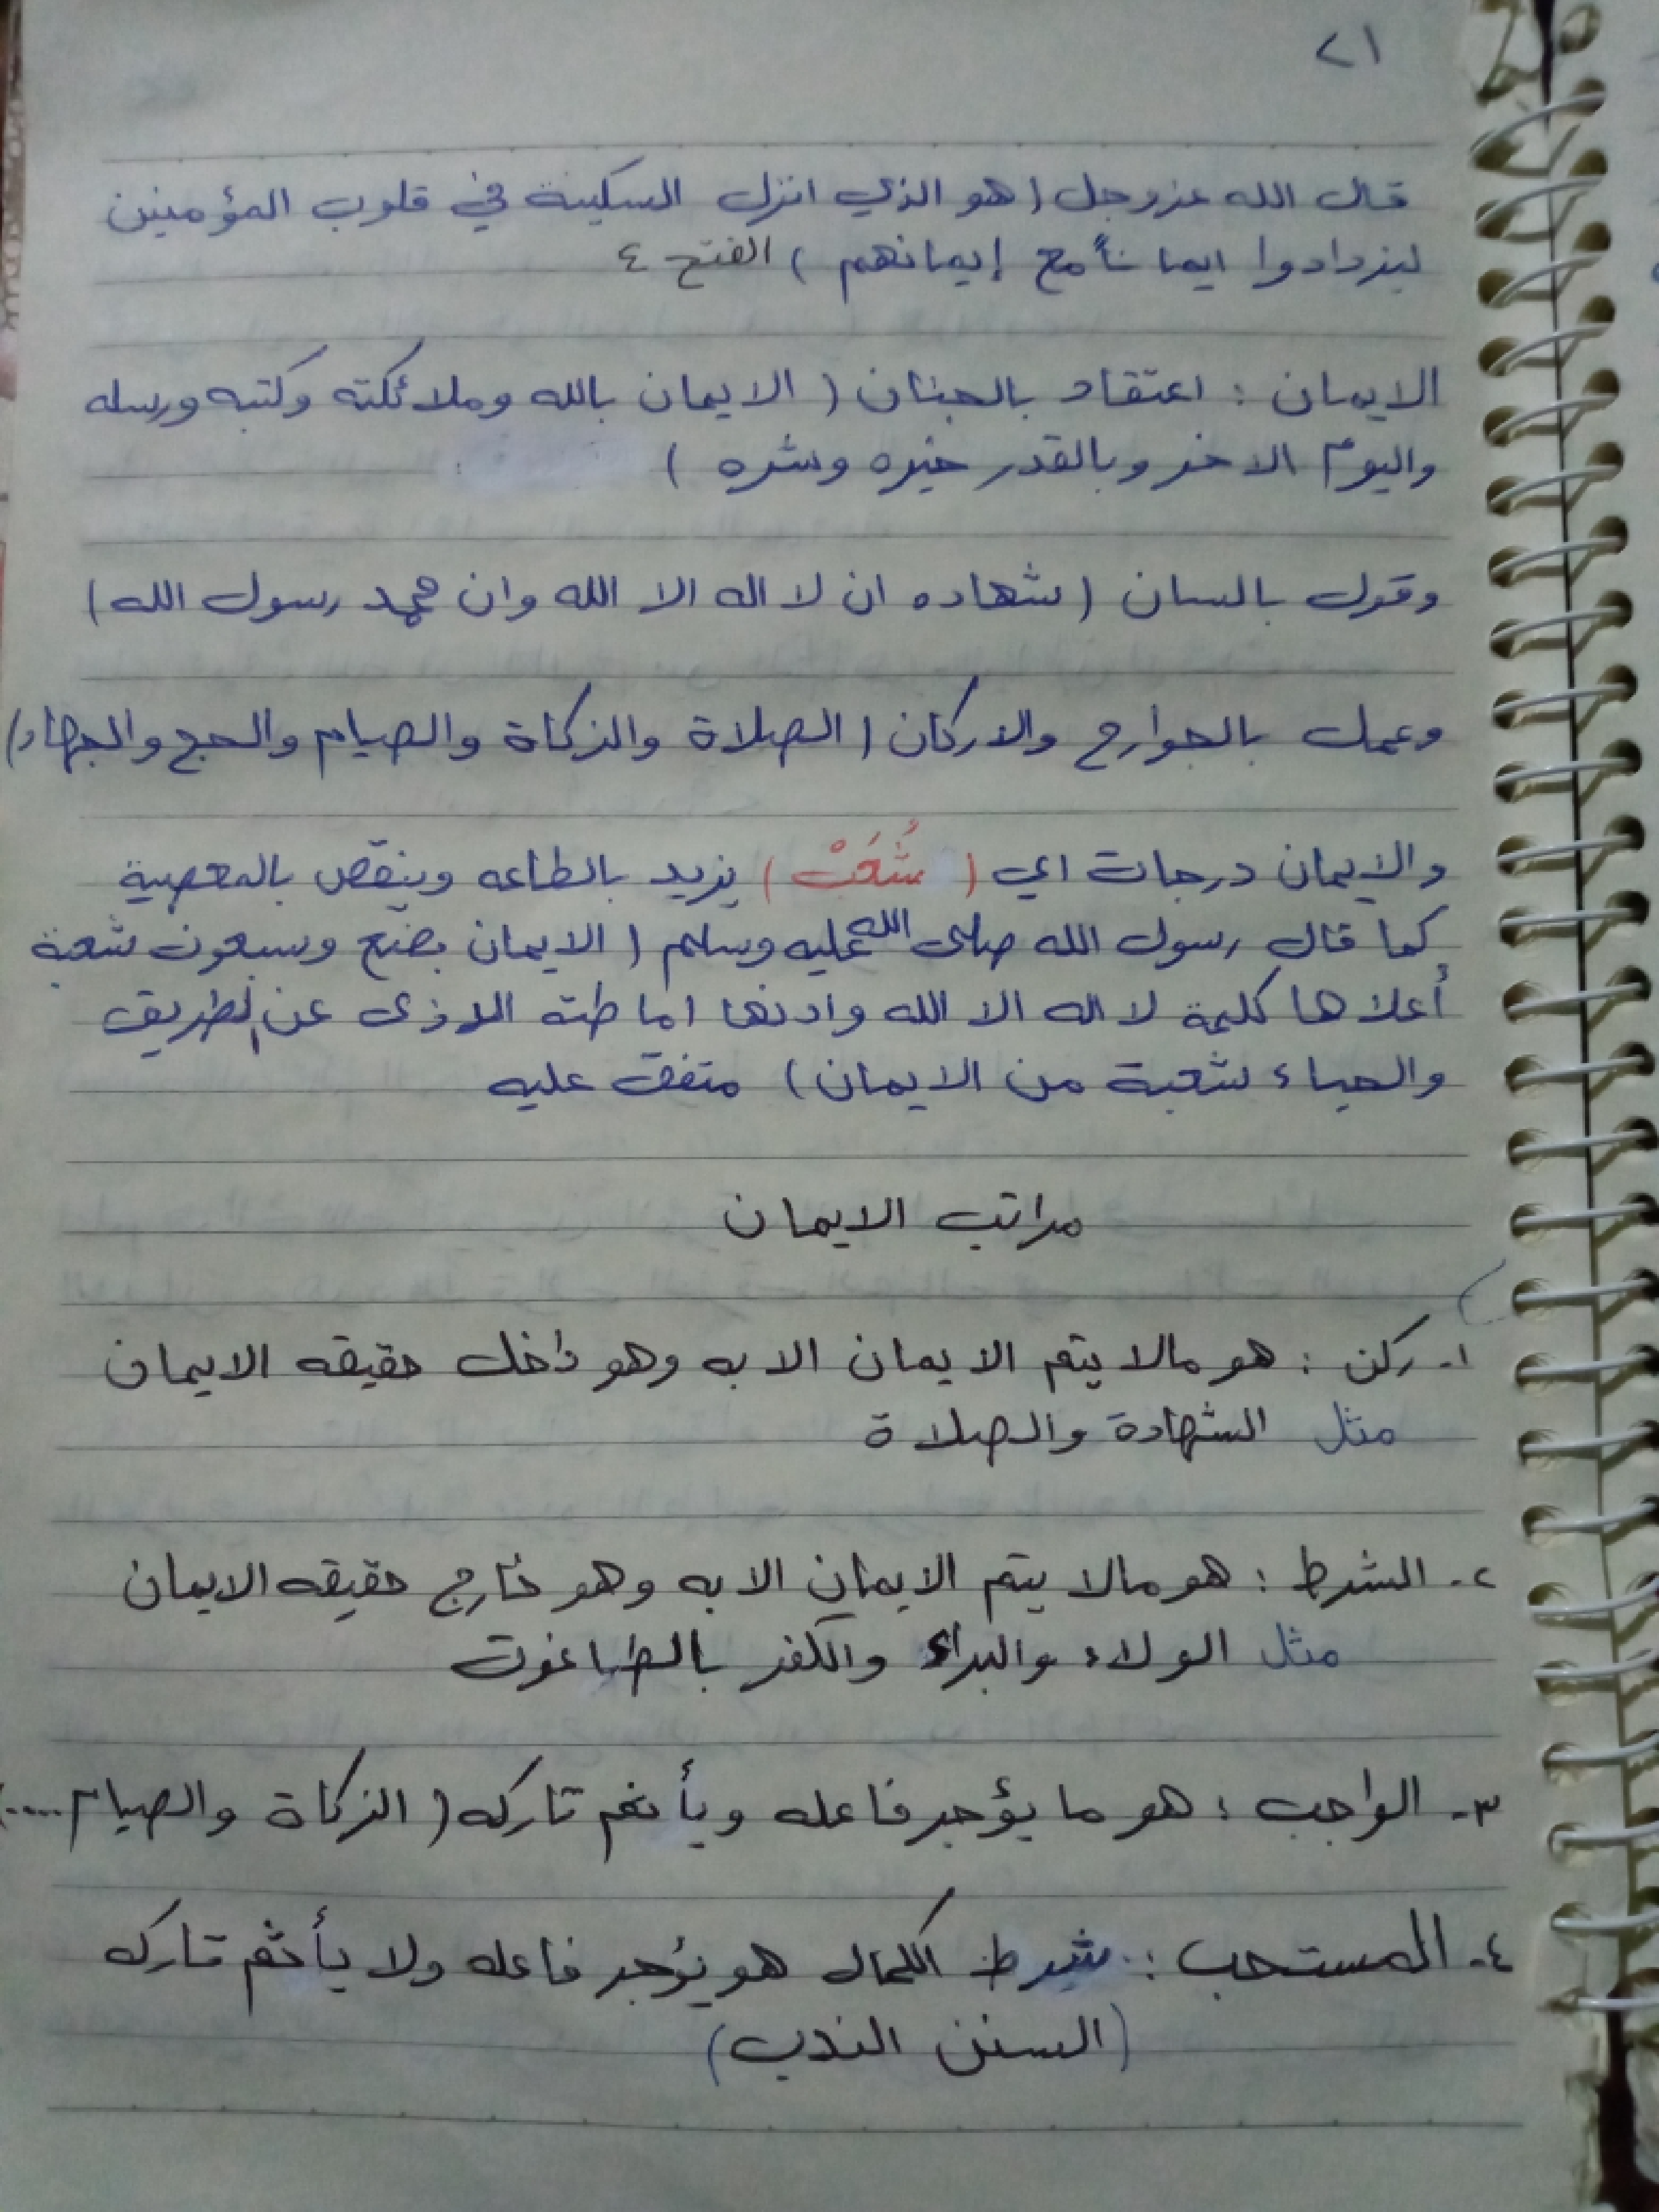 ٢١
قال الله عزوجل (هو الذي انزل السكينة في قلوب المؤمنين
ليزدادوا ايماناً مع إيمانهم) الفتح ٤
الايمان : اعتقاد بالجنان (الايمان بالله وملائكته وكتبه ورسله
واليوم الاخر وبالقدر خيره وشره)
وقول بالسان (شهاده ان لا اله الا الله وان محمد رسول الله)
وعمل بالجوارح والاركان (الصلاة والزكاة والصيام والحج والجهاد)
والايمان درجات اي (شُعَبْ) يزيد بالطاعه وينقص بالمعصية
كما قال رسول الله صلى الله عليه وسلم (الايمان بضع وسبعون شعبة
أعلاها كلمة لا اله الا الله وادنها اماطته الاذى عن الطريق
والحياء شعبة من الايمان) متفق عليه
مراتب الايمان
١- ركن : هو مالا يتم الايمان الا به وهو داخل حقيقه الايمان
مثل الشهادة والصلاة
٢- الشرط : هو مالا يتم الايمان الا به وهو خارج حقيقه الايمان
مثل الولاء والبراء والكفر بالطاغوت
٣- الواجب : هو ما يؤجر فاعله ويأثم تاركه (الزكاة والصيام ....)
٤- المستحب : شرط الكمال هو يؤجر فاعله ولا يأثم تاركه
(السنن الندب)